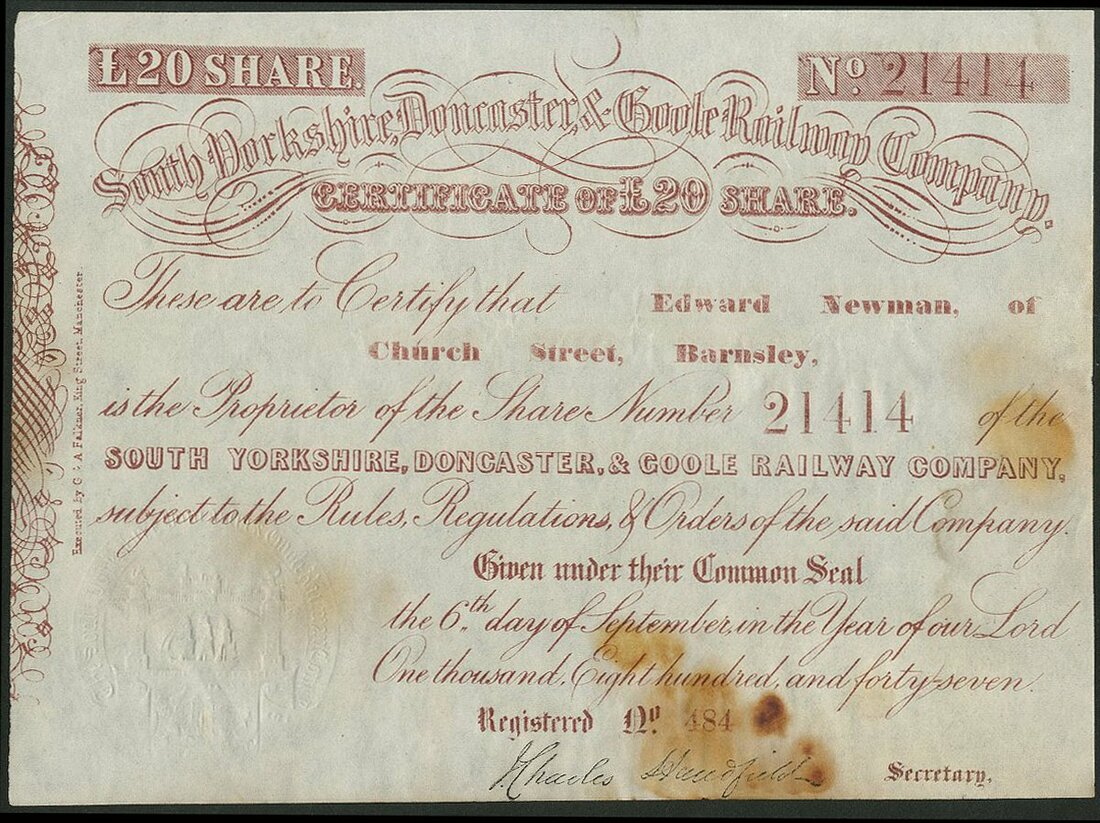 £20 SHARE.
No. 21414
South Yorkshire, Doncaster, & Goole Railway Company.
CERTIFICATE OF £20 SHARE.
These are to Certify that Edward Newman, of
Church Street, Barnsley,
is the Proprietor of the Share Number 21414 of the
SOUTH YORKSHIRE, DONCASTER, & GOOLE RAILWAY COMPANY,
subject to the Rules, Regulations, & Orders of the said Company.
Given under their Common Seal
the 6th day of September, in the Year of our Lord
One thousand, Eight hundred, and forty-seven.
Registered No. 484
Charles Secretary.
Executed by G & A Falkner, King Street, Manchester.